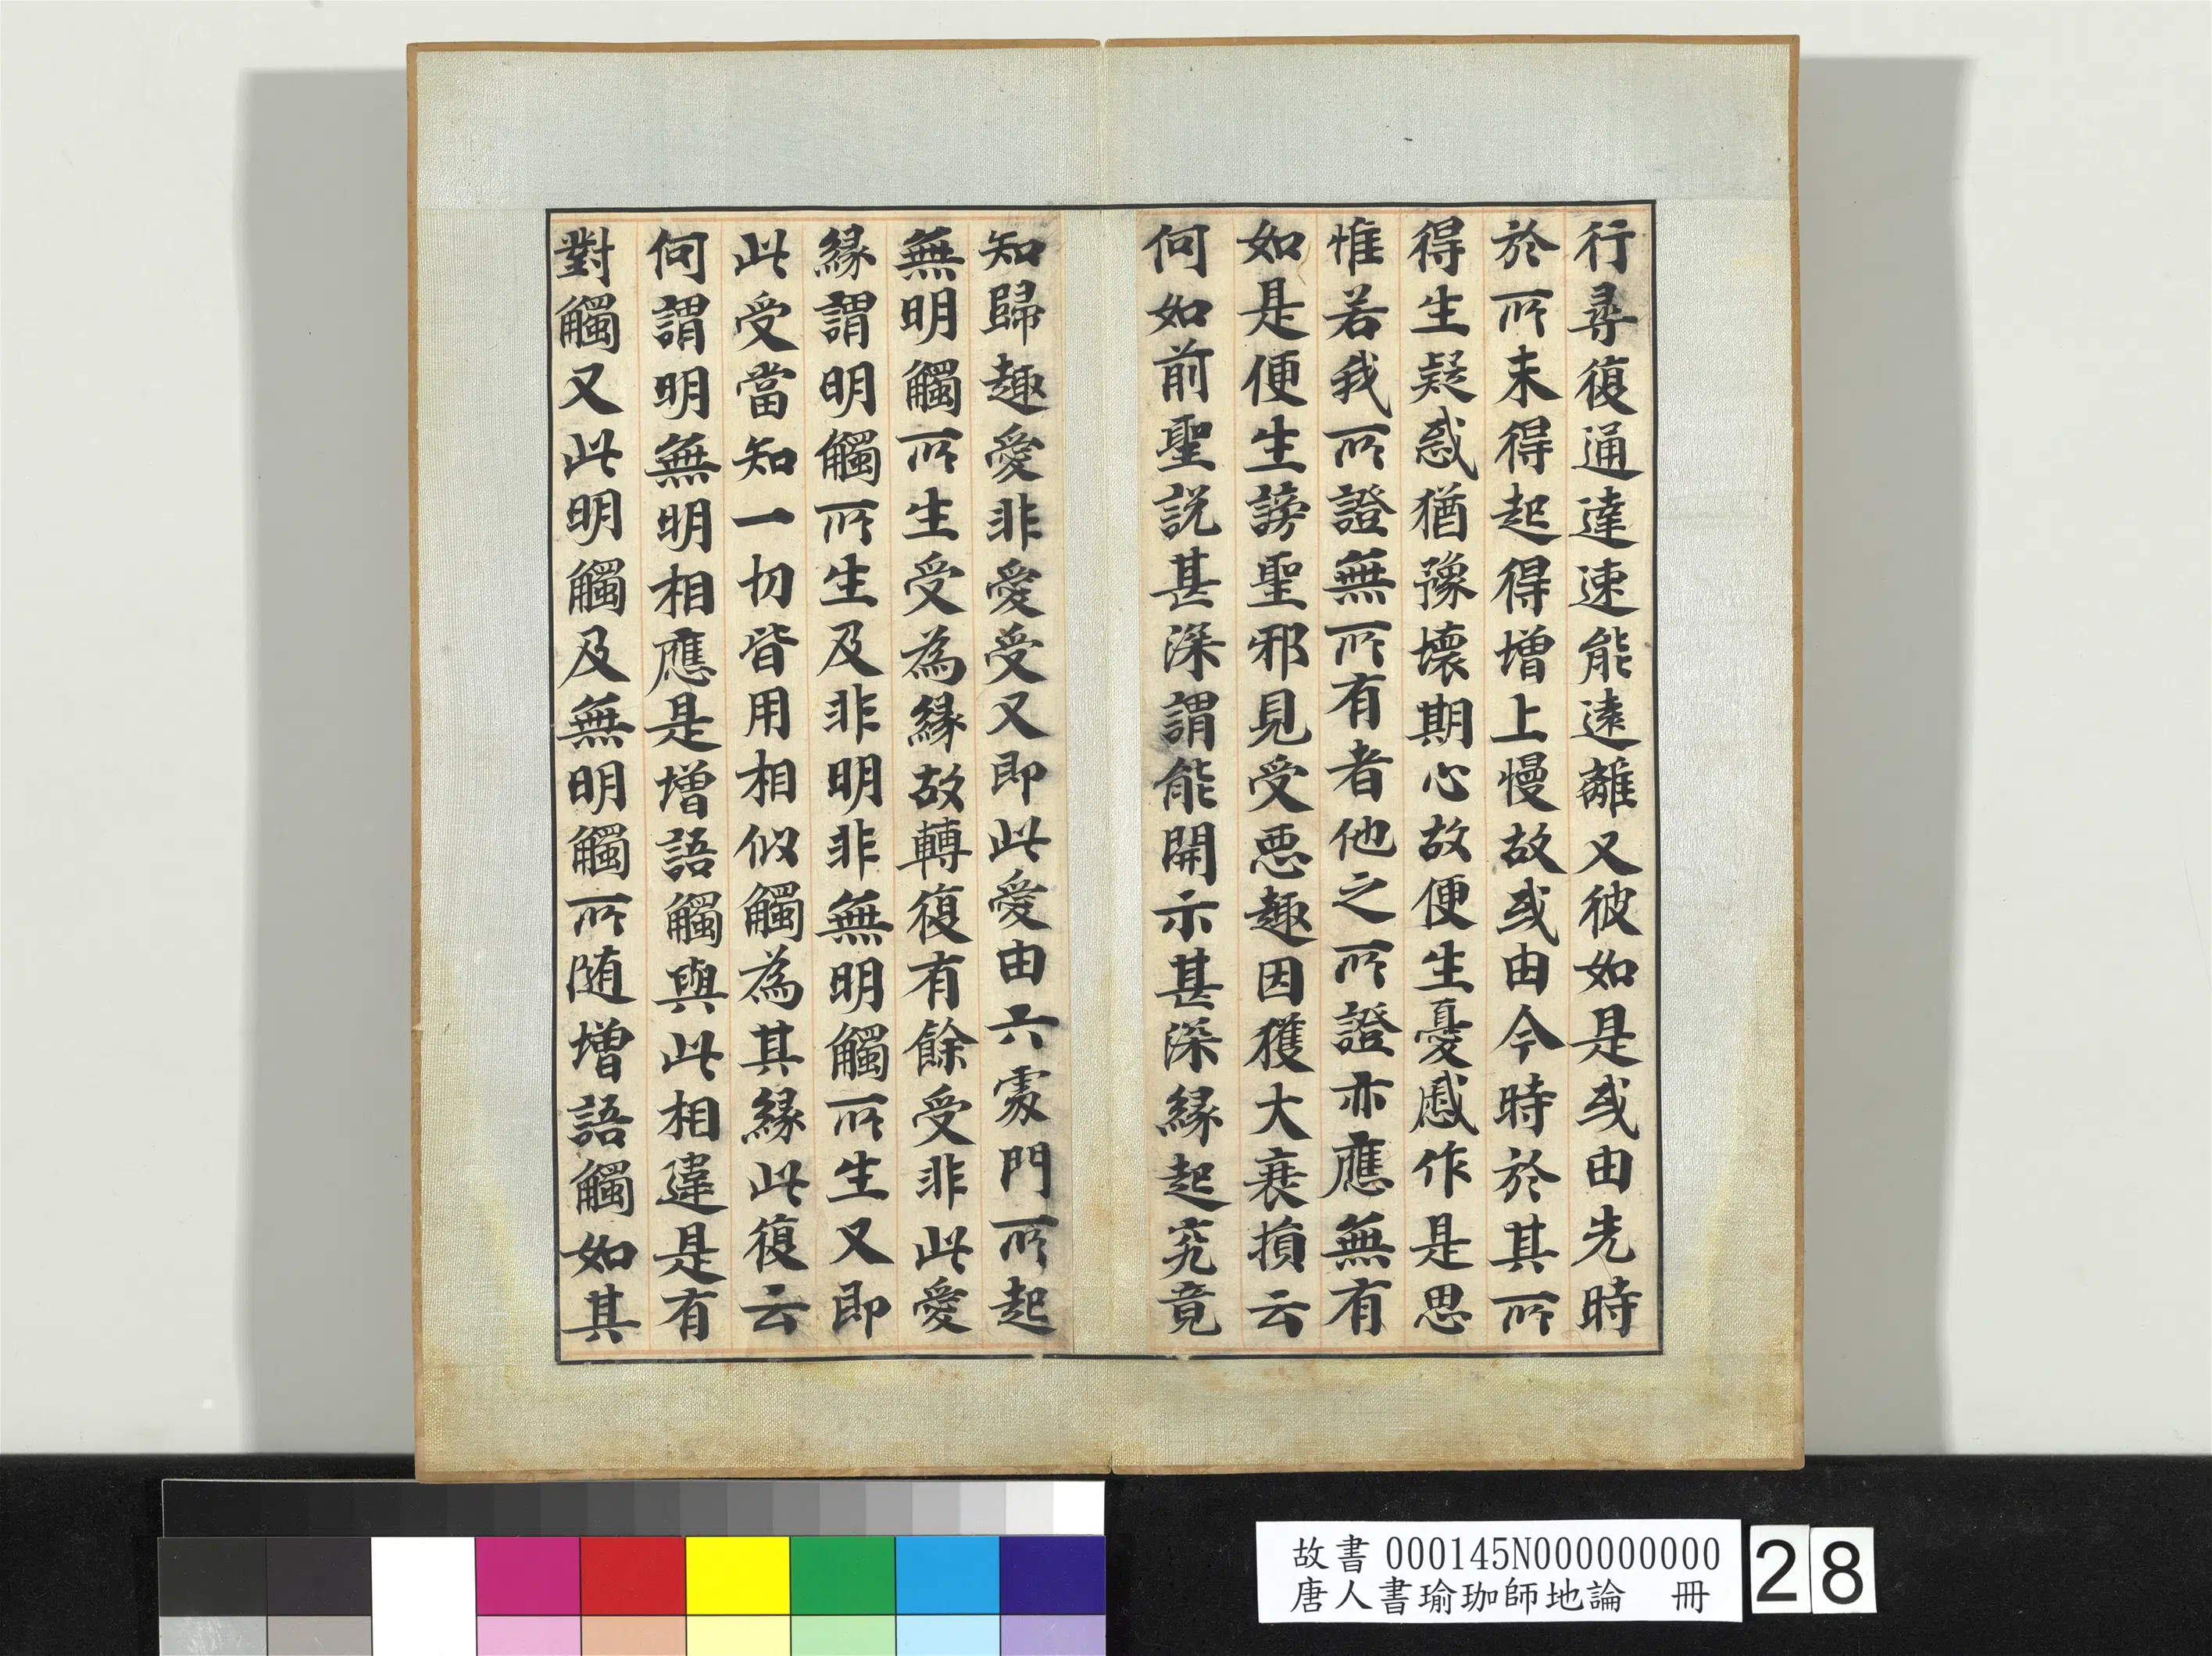 行尋復通達速能遠離又彼如是或由先時
於所未得起得增上慢故或由今時於其所
得生疑惑猶豫壞期心故便生憂慼作是思
惟若我所證無所有者他之所證亦應無有
如是便生謗聖邪見受惡趣因獲大衰損云
何如前聖説甚深謂能開示甚深緣起究竟
知歸趣愛非愛受又即此愛由六處門所起
無明觸所生受為緣故轉復有餘受非此愛
緣謂明觸所生及非明非無明觸所生又即
此受當知一切皆用相似觸為其緣此復云
何謂明無明相應是增語觸與此相違是有
對觸又此明觸及無明觸所随增語觸如其
故書 000145N000000000
唐人書瑜珈師地論 冊
28